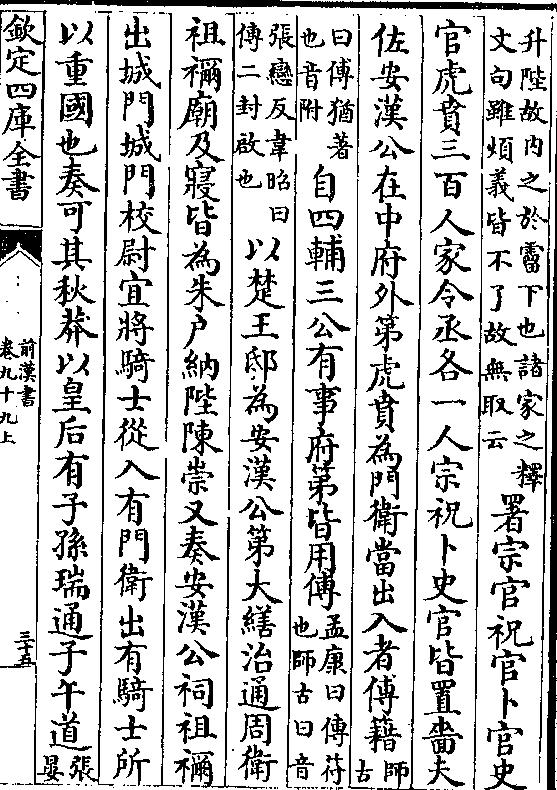 升陛故内之於霤下也諸家之釋
文句雖煩義皆不了故無取云
署宗官祝官卜官史
官虎賁三百人家令丞各一人宗祝卜史官皆置嗇夫
佐安漢公在中府外第虎賁為門衛當出入者傅籍
師
古
曰傅猶著
也音附
自四輔三公有事府第皆用傳
孟康曰傳符
也師古曰音
張戀反韋昭曰
傳二封啟也
以楚王邸為安漢公第大繕治通周衛
祖禰廟及寢皆為朱户納陛陳崇又奏安漢公祠祖禰
出城門城門校尉宜將騎士從入有門衛出有騎士所
以重國也奏可其秋莽以皇后有子孫瑞通子午道
張
晏
欽定四庫全書
前漢書
卷九十九上
三十五